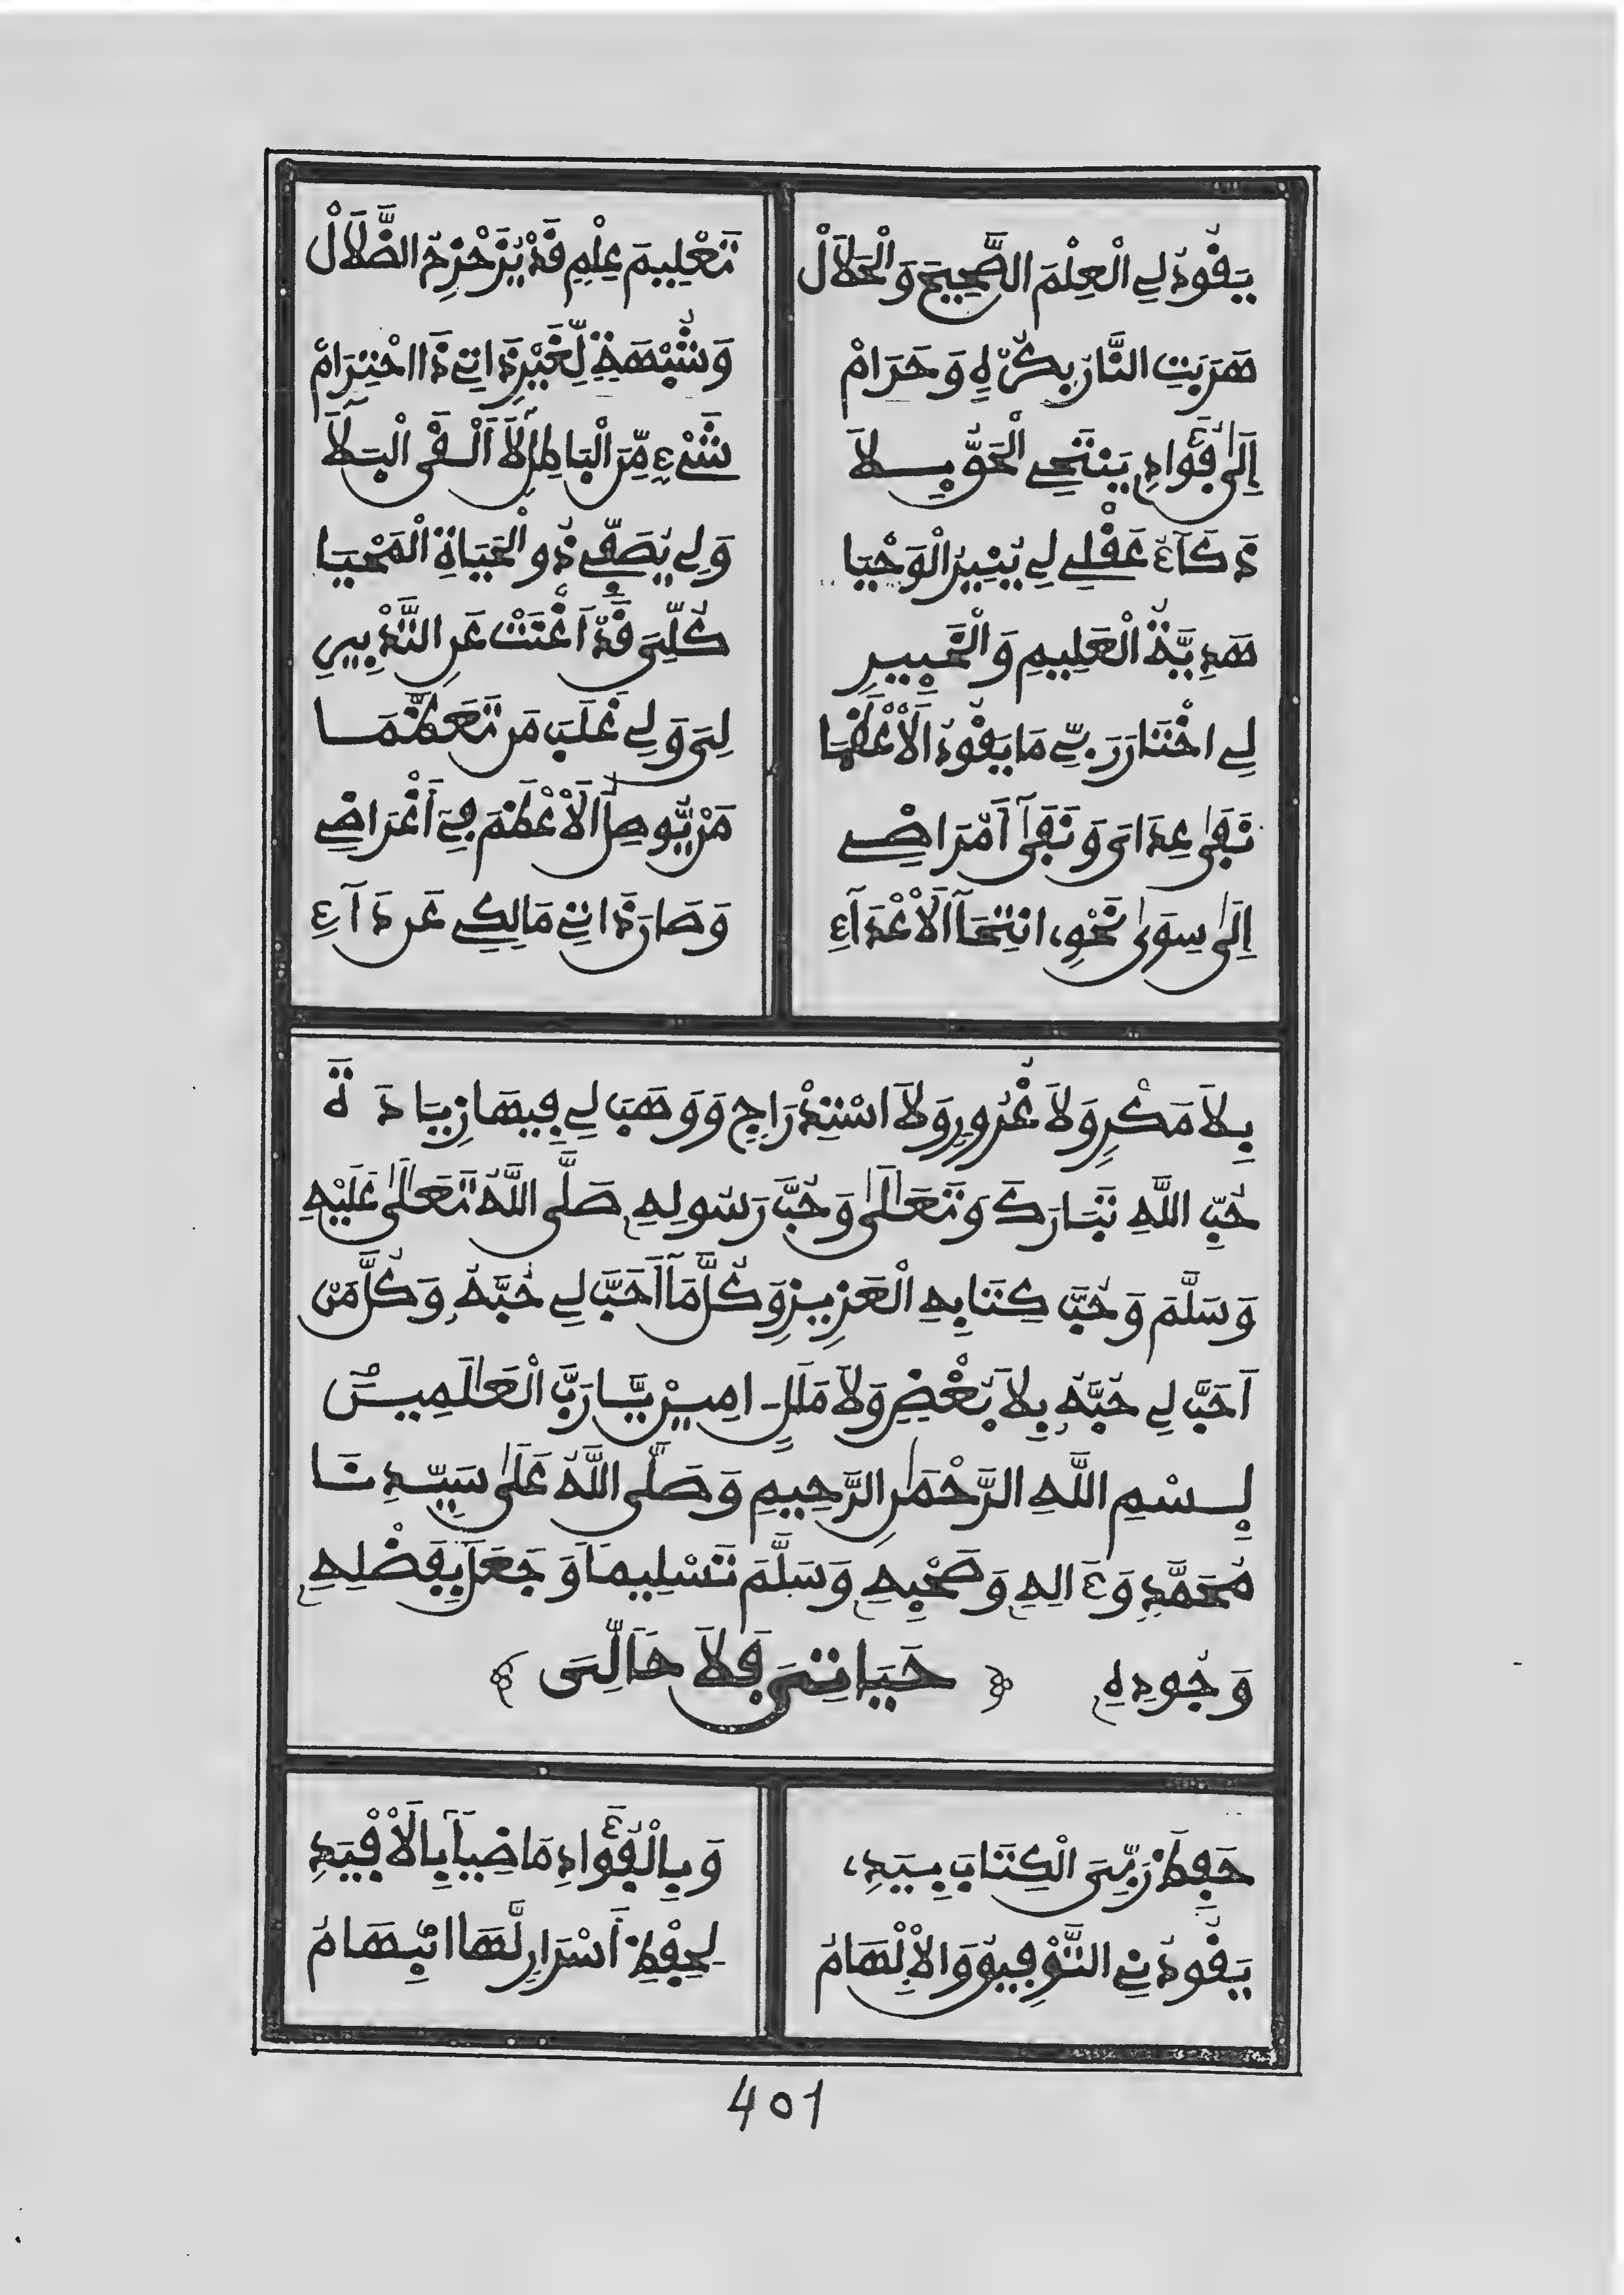 يَقُودُ لِي الْعِلْمَ الصَّحِيحَ وَالْحَلَالْ تَعْلِيمَ عِلْمٍ قَدْ يُزَحْزِحُ الضَّلَالْ
هَرَبَتِ النَّارُ بِكُرْهٍ وَحَرَامْ وَشُبْهَةٍ لِّغَيْرِ ذَاتِي ذَا احْتِرَامْ
إِلَىٰ فُؤَادِي يَنْتَحِي الْحَقُّ بِلَا شَيْءٍ مِّنَ الْبَاطِلِ إِلَّا الْبَلَا
ذَكَاءُ عَقْلِي لِي يُنِيرُ الْوَحْيَا وَلِي يُصَفِّي ذُو الْحَيَاةِ الْمَحْيَا
هَدِيَّةُ الْعَلِيمِ وَالْخَبِيرِ كُلِّيَ قَدْ أَغْنَتْ عَنِ التَّدْبِيرِ
لِي اخْتَارَ رَبِّي مَا يَقُودُ الْأَعْظَمَا لِيَ وَلِي غَلَبَ مَن تَعَظَّمَا
نَفَىٰ عِدَاتِي وَنَفَىٰ أَمْرَاضِي مَنْ يُّوصِلُ الْأَعْظَمَ فِي أَغْرَاضِي
إِلَىٰ سِوَىٰ نَحْوِي انْتِحَا الْأَعْدَاءِ وَصَارَ ذَاتِي مَالِكِي عَن دَاءِ
بِلَا مَكْرٍ وَلَا غُرُورٍ وَلَا اسْتِدْرَاجٍ وَوَهَبَ لِي فِيهَا زِيَادَةَ
حُبِّ اللَّهِ تَبَارَكَ وَتَعَالَىٰ وَحُبَّ رَسُولِهِ صَلَّى اللَّهُ تَعَالَىٰ عَلَيْهِ
وَسَلَّمَ وَحُبَّ كِتَابِهِ الْعَزِيزِ وَكُلَّ مَا أَحَبَّ لِي حُبَّهُ وَكُلَّ مَنْ
أَحَبَّ لِي حُبَّهُ بِلَا بُغْضٍ وَلَا مَلَلٍ ـ امِينْ يَّا رَبَّ الْعَالَمِينَ
بِسْمِ اللَّهِ الرَّحْمَٰنِ الرَّحِيمِ وَصَلَّى اللَّهُ عَلَىٰ سَيِّدِنَا
مُحَمَّدٍ وَءَالِهِ وَصَحْبِهِ وَسَلَّمَ تَسْلِيمًا وَجَعَلَ بِفَضْلِهِ
وَجُودِهِ ﴿ حَيَاتِيَ فَلَاحًا لِّيَ ﴾
حِفْظُ رَبِّيَ الْكِتَابَ بِيَدِي وَبِالْفُؤَادِ مَاضِيًا بِالْأَفْيَدِ
يَقُودُنِي التَّوْفِيقُ وَالْإِلْهَامُ لِحِفْظِ أَسْرَارٍ لَّهَا انْبِهَامُ
401